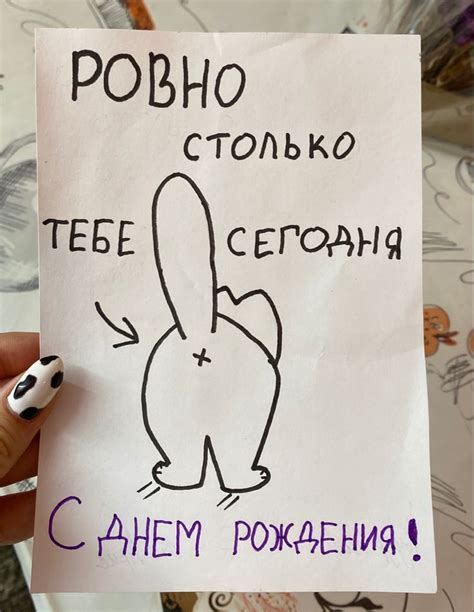 РОВНО
СТОЛЬКО
ТЕБЕ СЕГОДНЯ
С ДНЕМ РОЖДЕНИЯ!